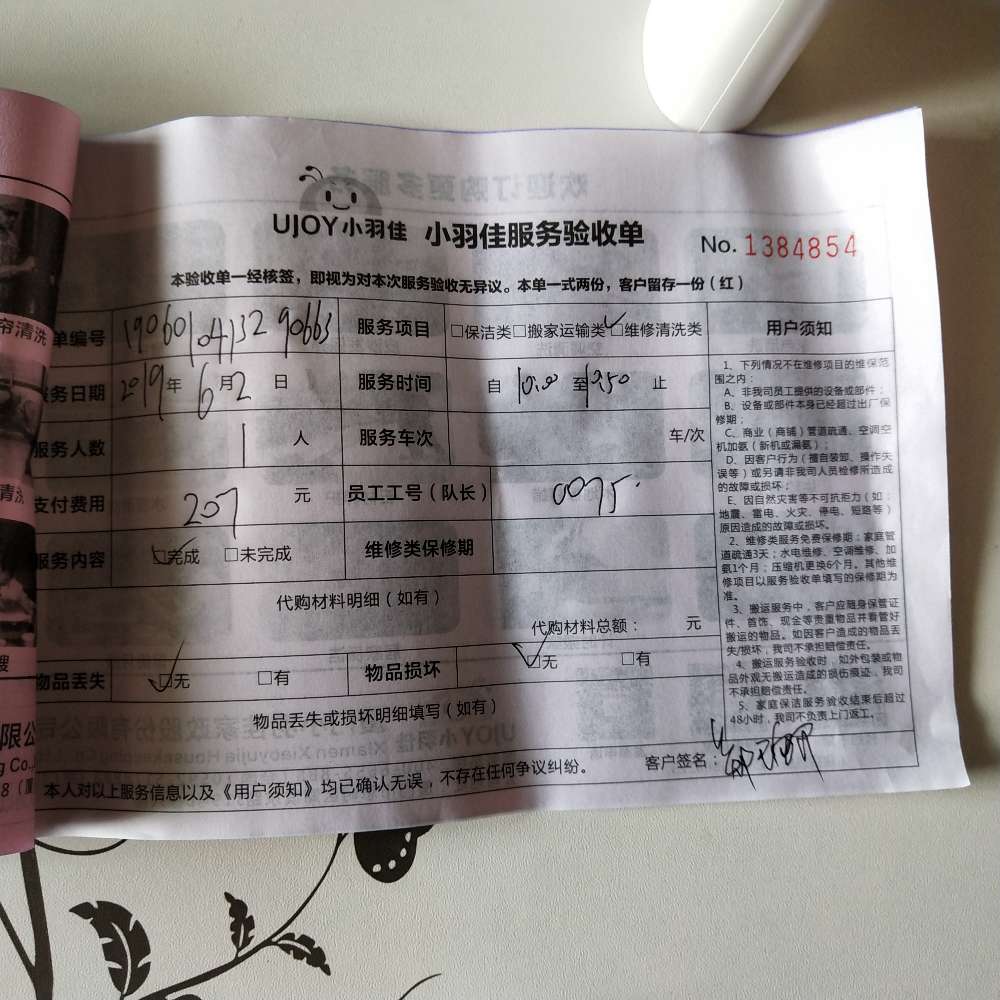 UJOY小羽佳 小羽佳服务验收单 No. 1384854
本验收单一经核签，即视为对本次服务验收无异议。本单一式两份，客户留存一份（红）
单编号 服务项目 □保洁类□搬家运输类□维修清洗类 用户须知
务日期 2019年6月2日 服务时间 自 10:00 至 止
服务人数 1 人 服务车次 车/次
支付费用 207 元 员工工号（队长） 0075
服务内容 □完成 □未完成 维修类保修期
代购材料明细（如有）
代购材料总额： 元
物品丢失 □无 □有 物品损坏 □无 □有
物品丢失或损坏明细填写（如有）
本人对以上服务信息以及《用户须知》均已确认无误，不存在任何争议纠纷。 客户签名：
1、下列情况不在维修项目的维保范
围之内：
A、非我司员工提供的设备或部件；
B、设备或部件本身已经超过出厂保
修期；
C、商业（商铺）管道疏通、空调空
机加氨（新机或漏氨）；
D、因客户行为（擅自装卸、操作失
误等）或另请非我司人员检修所造成
的故障或损坏；
E、因自然灾害等不可抗拒力（如：
地震、雷电、火灾、停电、短路等）
原因造成的故障或损坏。
2、维修类服务免费保修期：家庭管
道疏通3天；水电维修、空调维修、加
氨1个月；压缩机更换6个月。其他维
修项目以服务验收单填写的保修期为
准。
3、搬运服务中，客户应随身保管证
件、首饰、现金等贵重物品并看管好
搬运的物品。如因客户造成的物品丢
失/损坏，我司不承担赔偿责任。
4、搬运服务验收时，如外包装或物
品外观无搬运造成的损伤痕迹，我司
不承担赔偿责任。
5、家庭保洁服务验收结束后超过
48小时，我司不负责上门返工。
帘清洗
清洗
限公
g Co.,